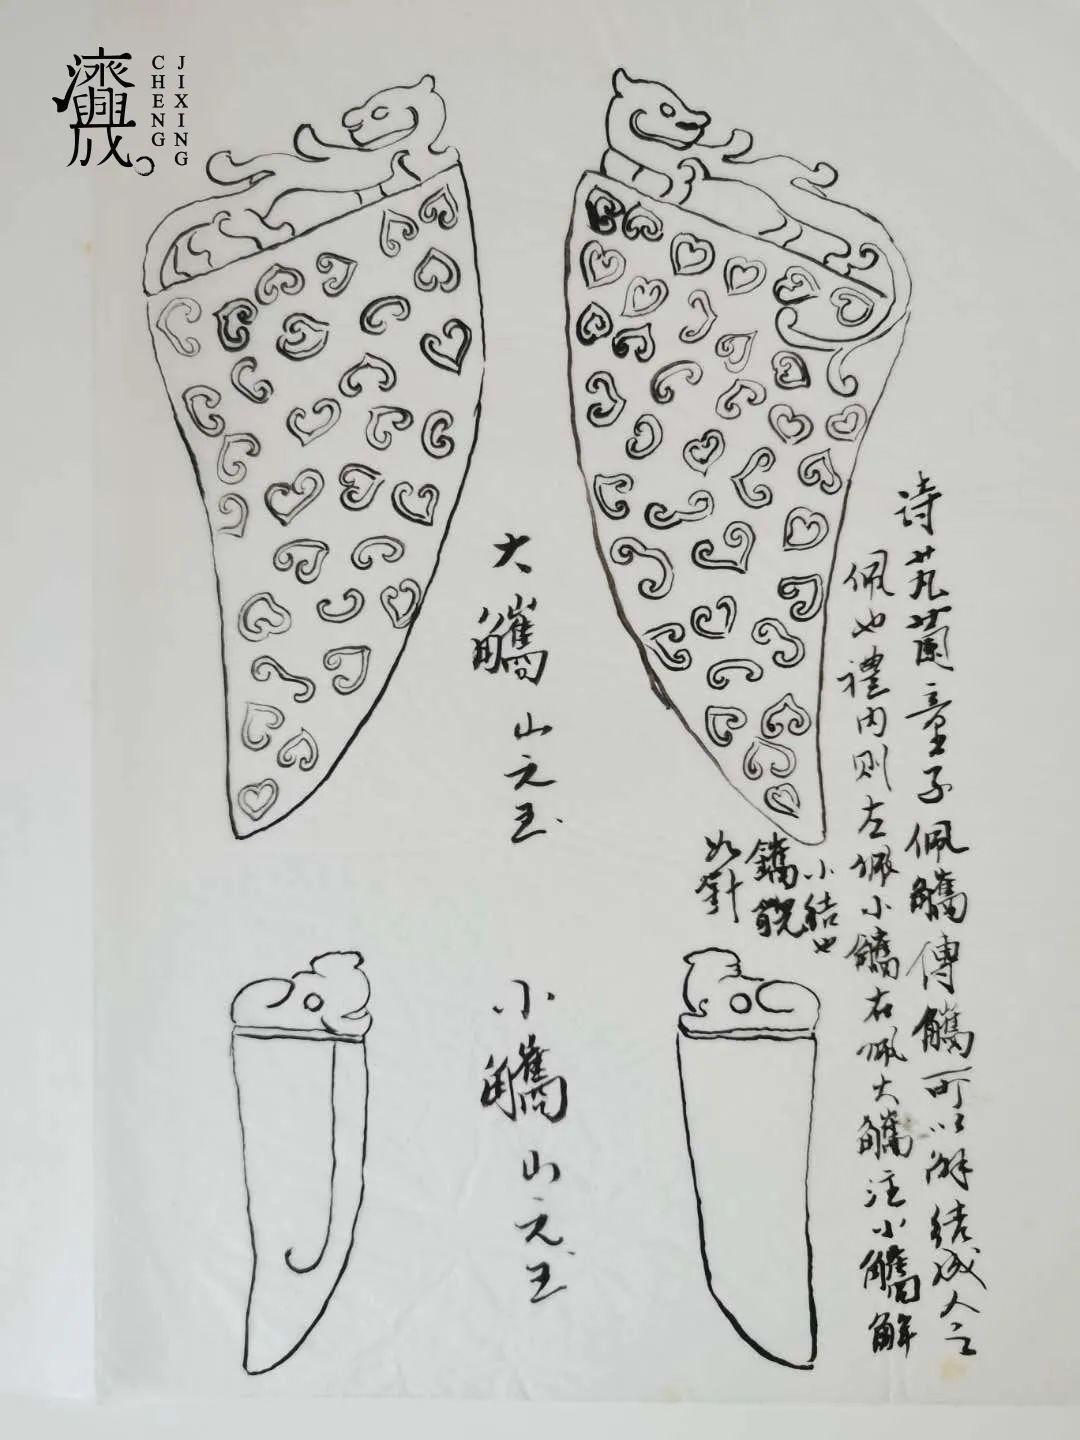 濟興成
JIXING
CHENG
诗芄蘭童子佩觿傳觿可以解結成人之
佩也禮内則左佩小觿右佩大觿注小觿解
小結也
觿貌
如針
大觿 山元玉
小觿 山元玉